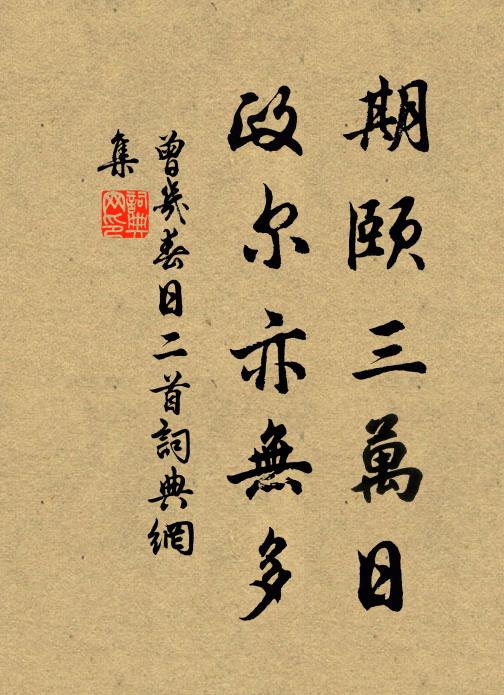 期頤三萬日
政尔亦無多
曾幾春日二首詞典網
集
詞典网印